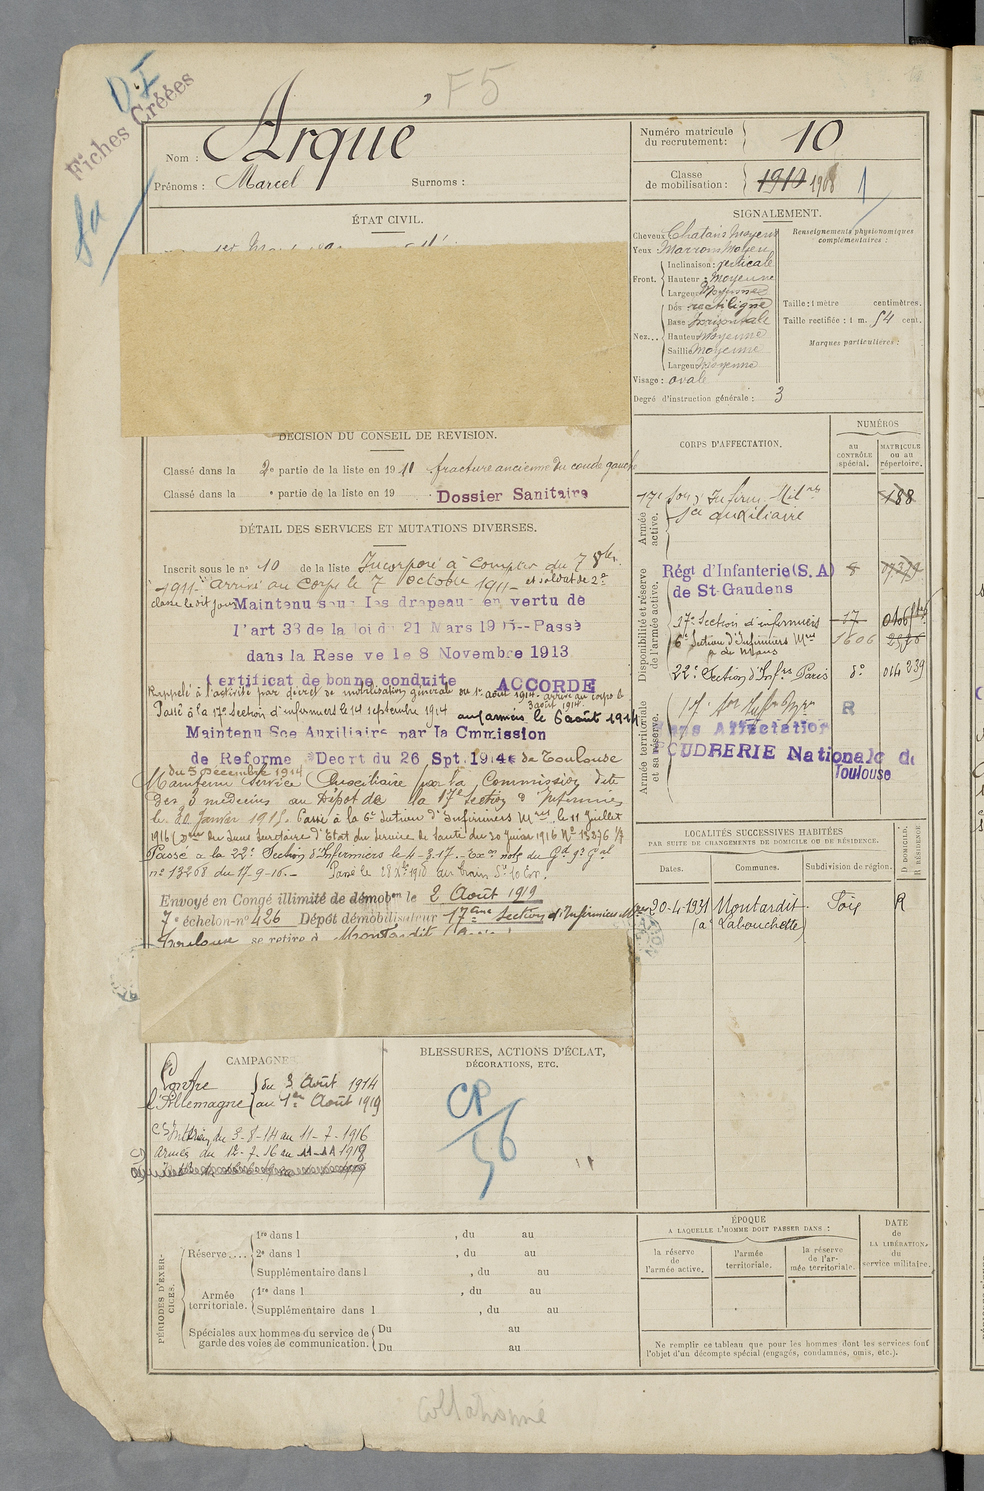 D.I
Fiches Créées
F5
Nom : Arqué
Prénoms : Marcel
Surnoms :
Numéro matricule du recrutement: 10
Classe de mobilisation : 1910 1908 1
ÉTAT CIVIL.
SIGNALEMENT.
Cheveux Chatains Moyens
Yeux Marrons Moyens
Front.
Inclinaison : verticale
Hauteur : Moyenne
Largeur Moyenne
Nez...
Dos rectiligne
Base horizontale
Hauteur Moyenne
Saillie Moyenne
Largeur Moyenne
Visage : ovale
Degré d'instruction générale : 3
Renseignements physionomiques complémentaires :
Taille : 1 mètre centimètres.
Taille rectifiée : 1 m. 54 cent.
Marques particulières :
DÉCISION DU CONSEIL DE RÉVISION.
Classé dans la 2e partie de la liste en 1911 fracture ancienne du coude gauche
Classé dans la e partie de la liste en 19
Dossier Sanitaire
DÉTAIL DES SERVICES ET MUTATIONS DIVERSES.
Inscrit sous le no 10 de la liste Incorporé à compter du 7 8bre
1911 arrivé au corps le 7 octobre 1911 et soldat de 2e
classe le dit jour
Maintenu sous les drapeaux en vertu de
l'art 33 de la loi du 21 Mars 1905--Passé
dans la Reserve le 8 Novembre 1913
Certificat de bonne conduite ACCORDE
Rappelé à l'activité par décret de mobilisation générale du 1er août 1914. arrivé au corps le
3 août 1914.
Passé à la 17e Section d'infirmiers le 14 septembre 1914
aux armées le 6 août 1914
Maintenu Sce Auxiliaire par la Cmmission
de Reforme Decrt du 26 Spt. 1914 de Toulouse
du 5 Décembre 1914
Maintenu Service Auxiliaire par la Commission dite
des 3 médecins au Dépôt de la 17e Section d'Infirmiers
le 20 Janvier 1915. Passé à la 6e Section d'Infirmiers Mres le 11 Juillet
1916 du Sous Secrétaire d'Etat du Service de Santé du 30 Juin 1916
Passé à la 22e Section d'Infirmiers le 4-3-17.
Envoyé en Congé illimité de démobon le 2 Août 1919
7e échelon-no 426 Dépôt démobilisateur 17ème Section d'Infirmiers Mres
Toulouse se retire à Montardit
CORPS D'AFFECTATION.
NUMÉROS
AU CONTRÔLE spécial.
MATRICULE ou au répertoire.
Armée active.
17e Son Infirm. Milres
Sce auxiliaire
188
Disponibilité et réserve de l'armée active.
Régt d'Infanterie (S.A)
de St-Gaudens
17e Section d'infirmiers 17
6e Section d'Infirmiers Mres 1606
22e Section d'Infrs Paris do 014239
Armée territoriale et sa réserve.
R
Sans Affectation
POUDRERIE Nationale de
Toulouse
LOCALITÉS SUCCESSIVES HABITÉES
PAR SUITE DE CHANGEMENTS DE DOMICILE OU DE RÉSIDENCE.
Dates.
Communes.
Subdivision de région.
D DOMICILE. R RÉSIDENCE
20-4-1931 Montardit Foix R
(à Labouchette)
CAMPAGNES
Contre l'Allemagne
du 3 Août 1914
au 1er Août 1919
Intérieur du 3-8-14 au 11-7-1916
Armées du 12-7-16 au 11-11 1918
BLESSURES, ACTIONS D'ÉCLAT,
DÉCORATIONS, ETC.
CP
56
PÉRIODES D'EXERCICES.
Réserve....
1re dans l , du au
2e dans l , du au
Supplémentaire dans l , du au
Armée territoriale.
1re dans l , du au
Supplémentaire dans l , du au
Spéciales aux hommes du service de garde des voies de communication.
Du au
Du au
ÉPOQUE
A LAQUELLE L'HOMME DOIT PASSER DANS :
la réserve de l'armée active.
l'armée territoriale.
la réserve de l'armée territoriale.
DATE de LA LIBÉRATION, du service militaire.
Ne remplir ce tableau que pour les hommes dont les services font
l'objet d'un décompte spécial (engagés, condamnés, omis, etc.).